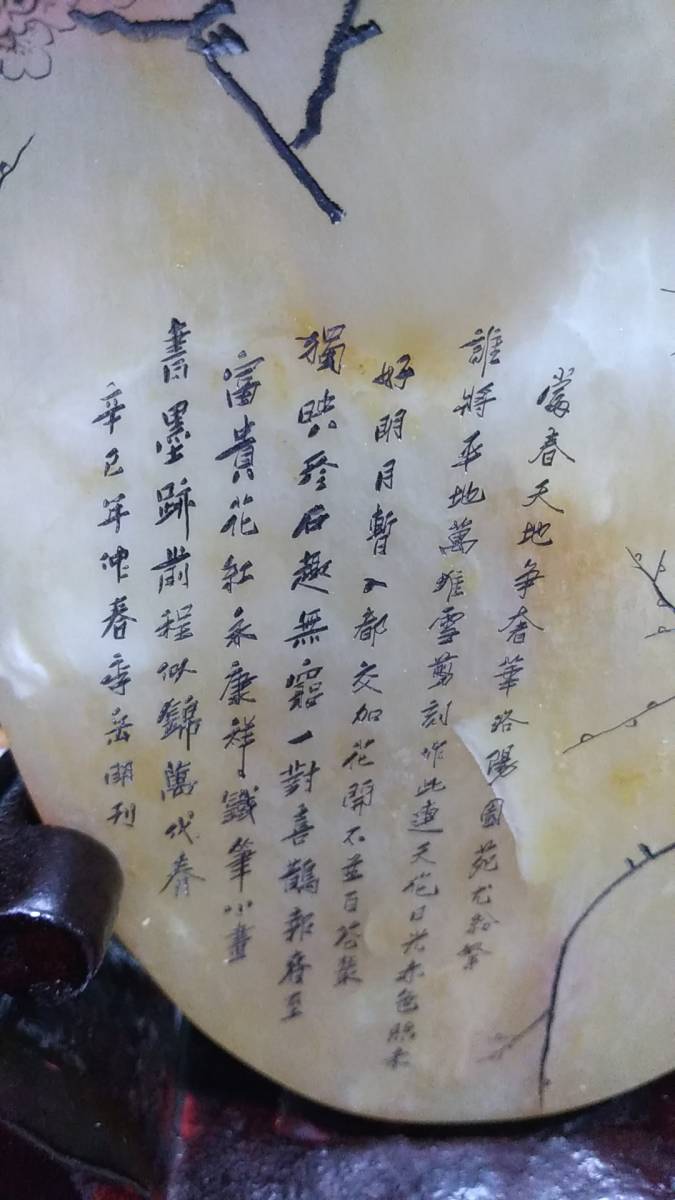 當春天地争奢華洛陽園苑尤紛拏
誰將平地萬堆雪剪刻作此連天花日光赤色照未
好明月暫入都交加花開不並百花叢
獨映
石趣無窮一對喜鵲報春至
富貴花紅永康祥鐵筆小畫
書墨跡前程似錦萬代春
辛巳年仲春季岳湖刊